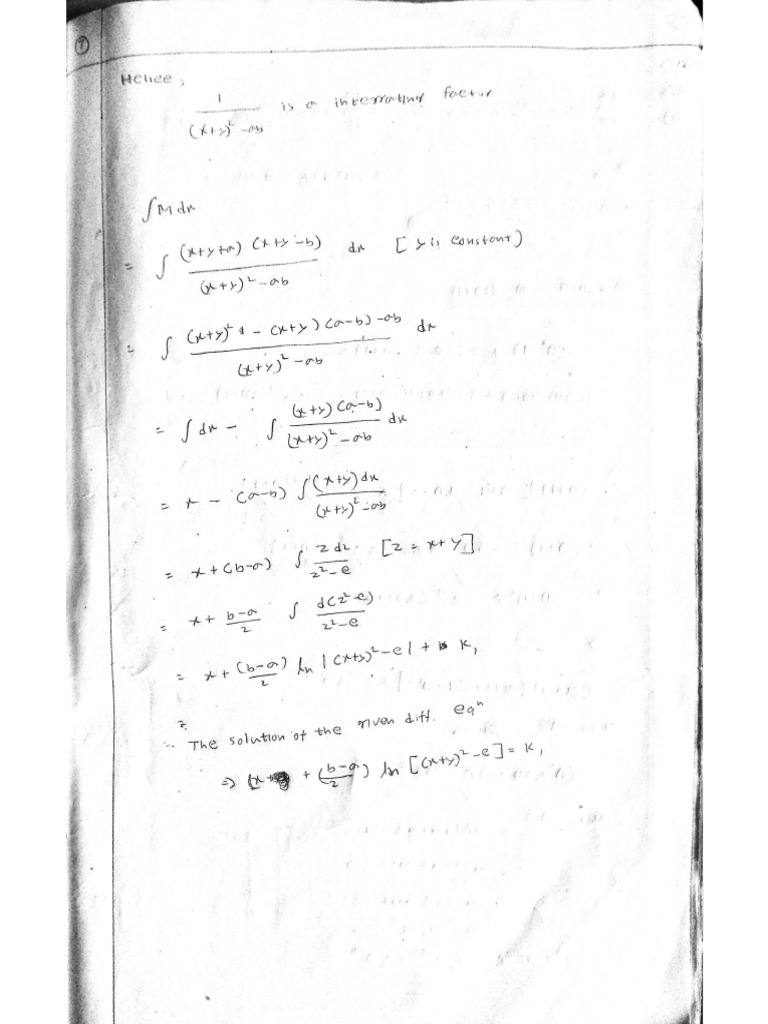 ①
Hence,
1/((x+y)²-ab) is a interrating factor
∫M dx
= ∫ ((x+y+a) (x+y-b))/((x+y)²-ab) dx [y is constant)
= ∫ ((x+y)² - (x+y) (a-b) -ab)/((x+y)²-ab) dx
= ∫dx - ∫ ((x+y) (a-b))/((x+y)²-ab) dx
= x - (a-b) ∫ ((x+y)dx)/((x+y)²-ab)
= x+(b-a) ∫ (z dz)/(z²-e) [z = x+y]
= x+ (b-a)/2 ∫ (d(z²-e))/(z²-e)
= x+ (b-a)/2 ln |(x+y)²-e| + K₁
∴ The solution of the given diff. eqⁿ
⇒ (x + (b-a)/2) ln [(x+y)²-e] = K₁